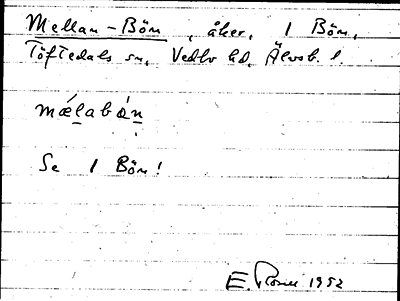 Mellan-Bön, åker, 1 Bön,
Töftedals sn, Vedbo hd, Älvsb. l.
mǽlabȯ́n
Se 1 Bön!
E. Rosell 1952